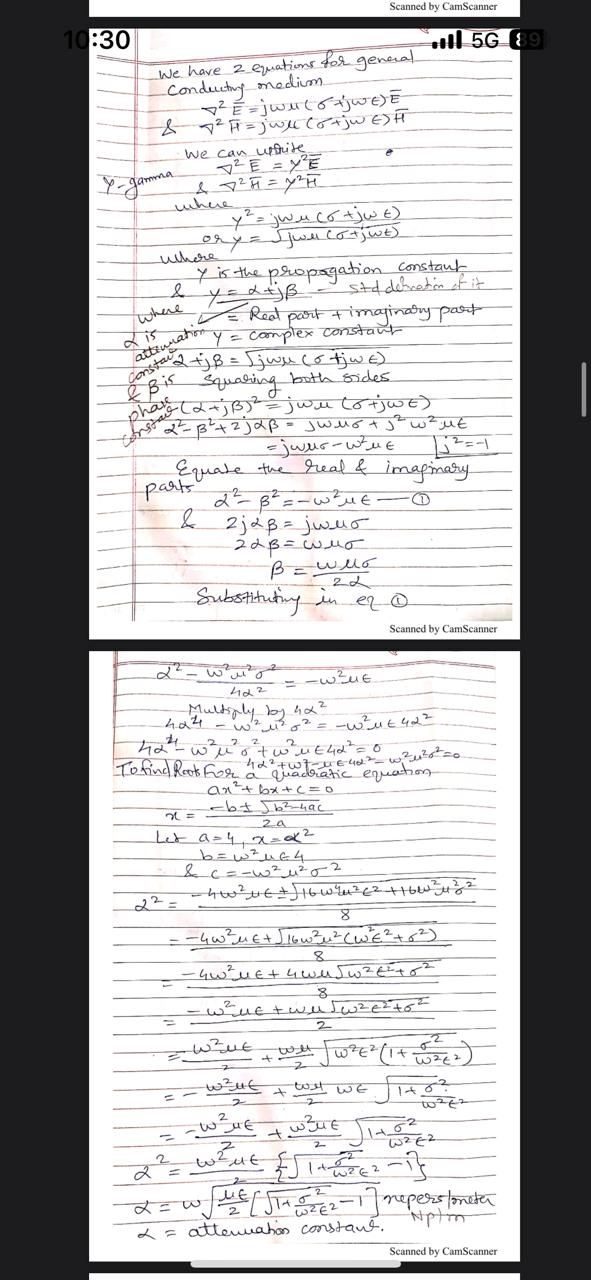 Scanned by CamScanner
10:30
5G 89
We have 2 equations for general
Conducting medium
∇² E̅ = jωμ(σ+jωϵ)E̅
& ∇² H̅ = jωμ(σ+jωϵ)H̅
We can write
∇² E̅ = γ²E̅
γ-gamma
& ∇² H̅ = γ²H̅
where
γ² = jωμ(σ+jωϵ)
or γ = √jωμ(σ+jωϵ)
Where
γ is the propagation constant
& γ = α+jβ - Std defination of it
= Real part + imaginary part
γ = complex constant
where
α is
attenuation
constant
& β is
phase
constant
α+jβ = √jωμ(σ+jωϵ)
Squaring both sides
(α+jβ)² = jωμ(σ+jωϵ)
α²-β²+2jαβ = jωμσ+j²ω²με
= jωμσ-ω²με j²=-1
Equate the real & imaginary
parts
α²-β²=-ω²με — ①
& 2jαβ = jωμσ
2αβ = ωμσ
β = ωμσ/2α
Substituting in eq ①
Scanned by CamScanner
α² - ω²μ²σ²/4α² = -ω²με
Multiply by 4α²
4α⁴ - ω²μ²σ² = -ω²με4α²
4α⁴-ω²μ²σ²+ω²με4α²=0
To find Root For a quadratic equation
ax²+bx+c=0
x = -b±√b²-4ac/2a
Let a=4, x=α²
b=ω²με4
& c=-ω²μ²σ²
α² = -4ω²με±√16ω⁴μ²ϵ²+16ω²μ²σ²/8
= -4ω²με+√16ω²μ²(ω²ϵ²+σ²)/8
= -4ω²με+4ωμ√ω²ϵ²+σ²/8
= -ω²με+ωμ√ω²ϵ²+σ²/2
= -ω²με/2 + ωμ/2 √ω²ϵ²(1+σ²/ω²ϵ²)
= -ω²με/2 + ωμ/2 ωϵ √1+σ²/ω²ϵ²
= -ω²με/2 + ω²με/2 √1+σ²/ω²ϵ²
α² = ω²με/2 {√1+σ²/ω²ϵ² -1}
α = ω√με/2[√1+σ²/ω²ϵ² -1] nepers/meter
Np/m
α = attenuation constant.
Scanned by CamScanner